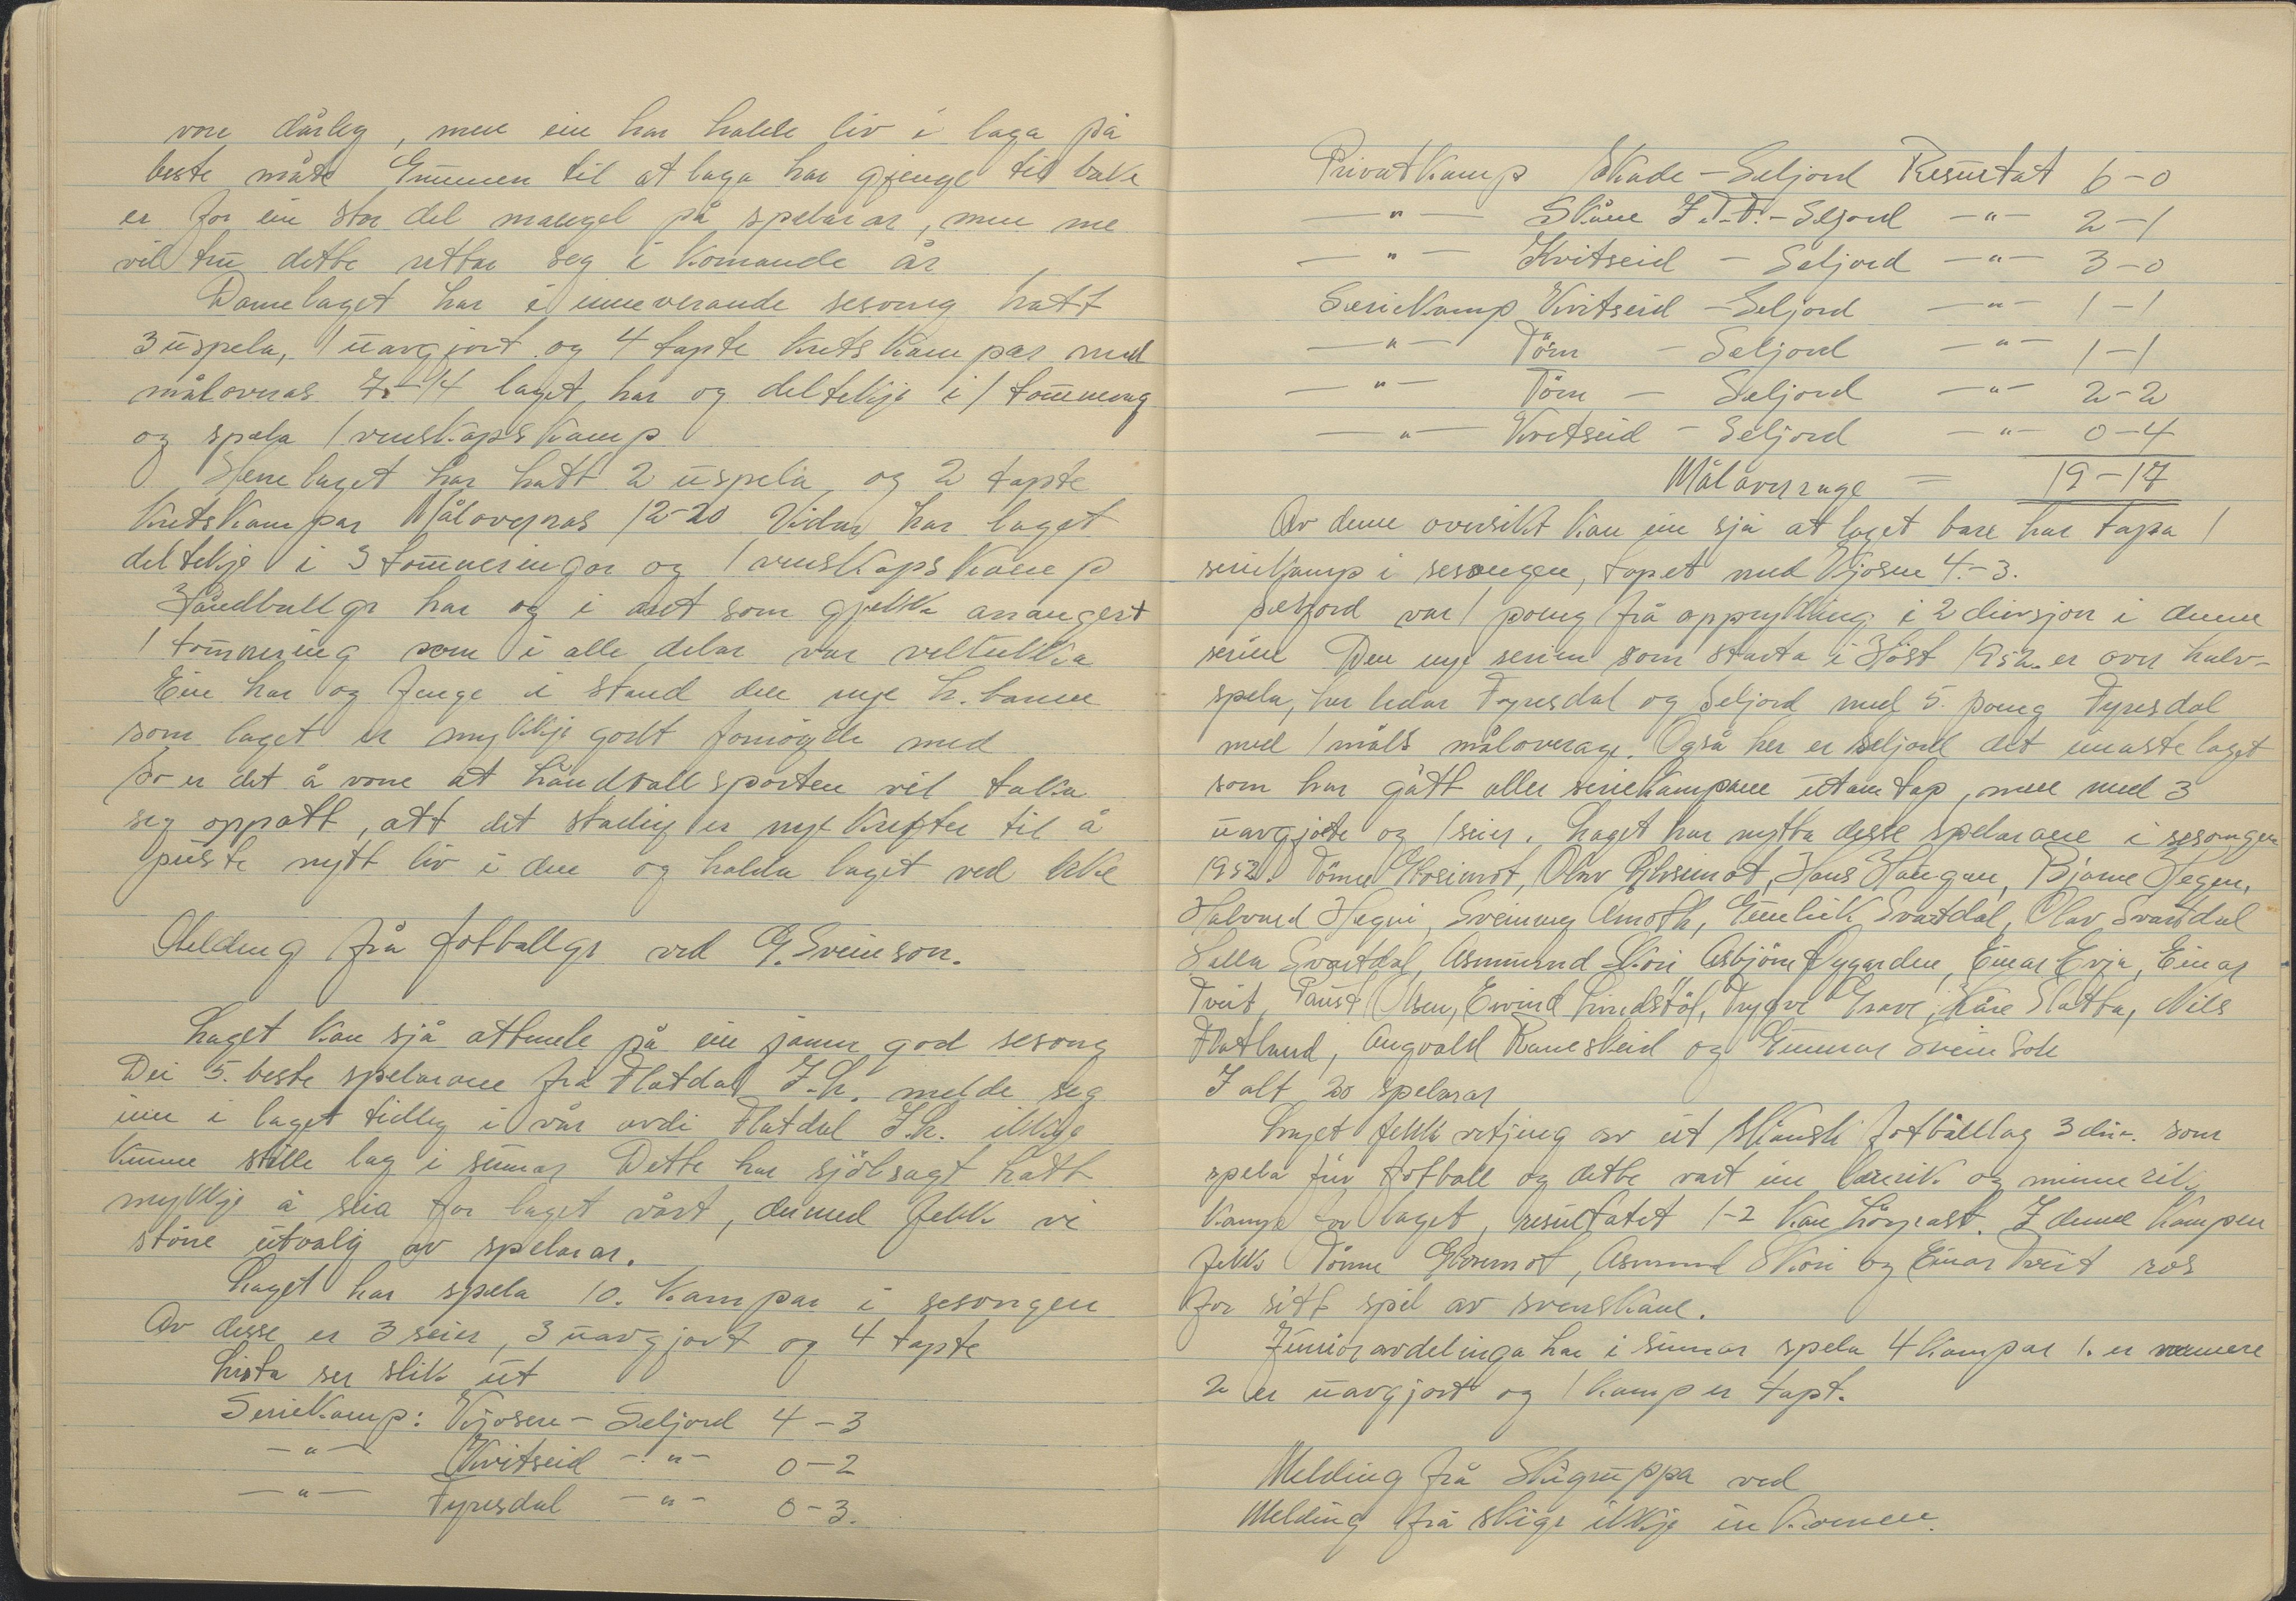 vore dårleg, men ein har halde liv i laga på
beste måte Grunnen til at laga har gjenge tilbake
er for ein stor del mangel på spelarar, men me
vil tru dette rettar seg i komande år
Damelaget har i inneverande sesong hatt
3 uspela, 1 uavgjort og 4 tapte kretskampar med
måloveras 7-14 laget har og deltekje i 1 turnering
og spela 1 venskapskamp
Herrelaget har hatt 2 uspela og 2 tapte
kretskampar Måloveras 12-20 Vidar har laget
deltekje i 3 turneringar og 1 venskapskamp
Håndballgr har og i året som gjekk arrangert
1 turnering som i alle delar var vellukka
Ein har og fenge i stand den nye h. banen
som laget er mykkje godt fornøgde med
So er det å vone at håndballsporten vil taka
seg oppatt, att det stadig er nye krefter til å
puste nytt liv i den og halda laget ved like
Melding frå fotballgr ved G. Sveinson.
Laget kan sjå attende på ein jamn god sesong
Dei 5. beste spelarane frå Flatdal I.L. melde seg
inn i laget tidleg i vår avdi Flatdal I.L. ikkje
kunne stille lag i sumar Dette har sjølsagt hatt
mykkje å seia for laget vårt, dermed fekk vi
større utvalg av spelarar.
Laget har spela 10. kampar i sesongen
Av desse er 3 seier, 3 uavgjort og 4 tapte
Lista ser slik ut
Seriekamp: Kjosen - Seljord 4-3
-"- Kvitseid -"- 0-2
-"- Fyresdal -"- 0-3.
Privatkamp Skade - Seljord Resultat 6-0
-"- Skåne I.F.F. - Seljord -"- 2-1
-"- Kvitseid - Seljord -"- 3-0
Seriekamp Kvitseid - Seljord -"- 1-1
-"- Tørn - Seljord -"- 1-1
-"- Tørn - Seljord -"- 2-2
-"- Kvitseid - Seljord -"- 0-4
Målaverage = 19-17
Av denne oversikt kan ein sjå at laget bare har tapa 1
seriekamp i sesongen, tapet med Kjosen 4-3.
Seljord var 1 poeng frå opprykking i 2 divisjon i denne
serien Den nye serien som starta i Høst 1952. er over halv-
spela, her leder Fyresdal og Seljord med 5. poeng Fyresdal
med 1 måls målaverage. Også her er Seljord det einaste laget
som har gått aller seriekampane utan tap, men med 3
uavgjorte og 1 seier. Laget har nytta desse spelarane i sesongen
1952. Tønne Glosimot, Olav Glosimot, Hans Haugan, Bjarne Hegen,
Halvard Hegni, Sveinung Åmoth, Gunleik Svartdal, Olav Svartdal
Salla Svartdal, Asmund Skori, Asbjørn Øygarden, Einar Evja, Einar
Tveit, Paust Olsen, Eivind Lindstøl, Trygve Grave, Kåre Slatta, Nils
Flatland, Angvald Raneskeid og Gunnar Sveinson
I alt 20 spelarar
Laget fekk vitjing av eit skånsk fotballlag 3 div. som
spela fin fotball og dette vart ein lærerik og minnerik
kamp for laget, resultatet 1-2 kan hørast. I denne kampen
fekk Tønne Glosimot, Asmund Skori og Einar Tveit ros
for sitt spel av svenskane.
Junioravdelinga har i sumar spela 4 kampar 1. er vunnen
2 er uavgjort og 1 kamp er tapt.
Melding frå Skigruppa ved
Melding frå skigr ikkje inkomen.